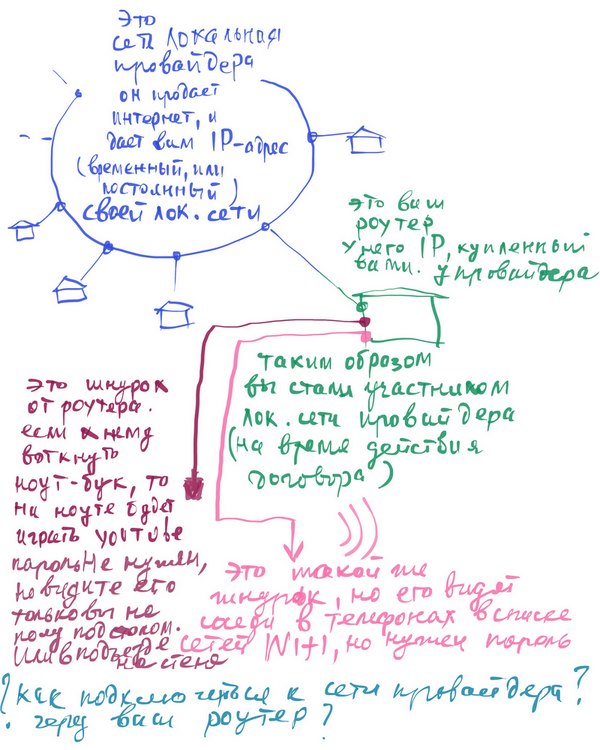 это
сеть локальная
провайдера
он продает
интернет, и
дает вам IP-адрес
(временный, или
постоянный)
своей лок. сети
это ваш
роутер
у него IP, купленный
вами. у провайдера
таким образом
вы стали участником
лок. сети провайдера
(на время действия
договора)
это шнурок
от роутера.
если к нему
воткнуть
ноут-бук, то
на ноуте будет
играть youtube
пароль не нужен,
но видите его
только вы на
полу под столом.
Или в подъезде
на стене
это такой же
шнурок, но его видят
соседи в телефонах в списке
сетей Wifi, но нужен пароль
? Как подключиться к сети провайдера?
через ваш роутер?